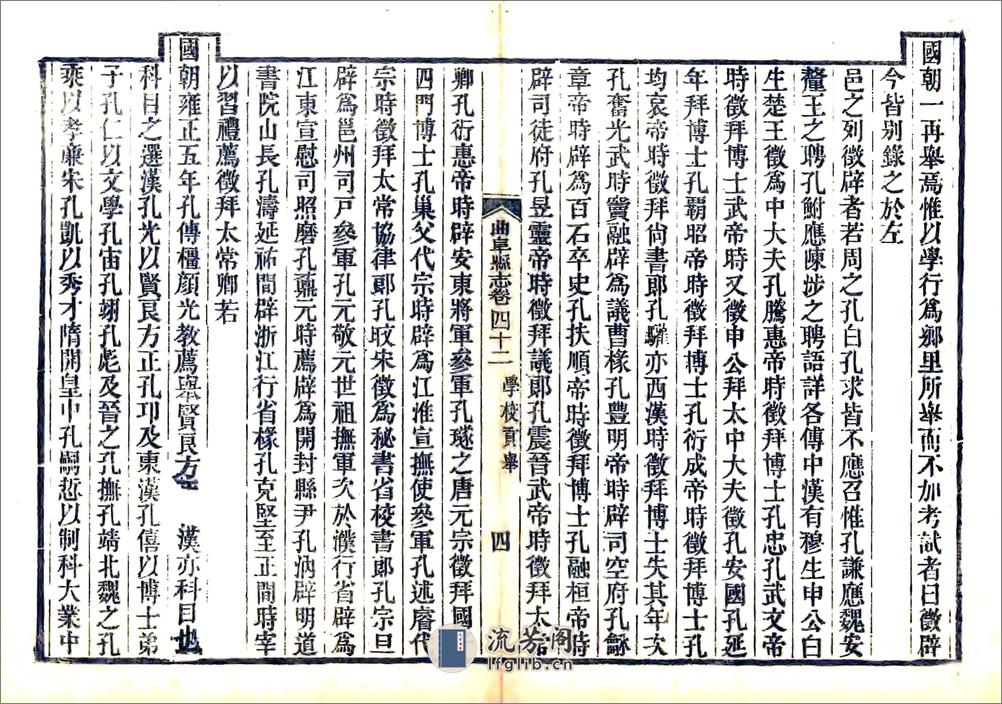 國朝一再舉焉惟以學行爲鄉里所舉而不加考試者曰徵辟
今皆別錄之於左
邑之列徵辟者若周之孔白孔求皆不應召惟孔謙應魏安
釐王之聘孔鮒應陳涉之聘語詳各傳中漢有穆生申公白
生楚王徵爲中大夫孔騰惠帝時徵拜博士孔忠孔武文帝
時徵拜博士武帝時又徵申公拜太中大夫徵孔安國孔延
年拜博士孔霸昭帝時徵拜博士孔衍成帝時徵拜博士孔
均哀帝時徵拜尚書郎孔驩亦西漢時徵拜博士失其年次
孔奮光武時竇融辟爲議曹椽孔豐明帝時辟司空府孔龢
章帝時辟爲百石卒史孔扶順帝時徵拜博士孔融桓帝時
辟司徒府孔昱靈帝時徵拜議郎孔震晉武帝時徵拜太常
卿孔衍惠帝時辟安東將軍參軍孔璲之唐元宗徵拜國子
四門博士孔巢父代宗時辟爲江淮宣撫使參軍孔述睿代
宗時徵拜太常協律郎孔旼宋徵爲秘書省校書郎孔宗旦
辟爲邕州司戸參軍孔元敬元世祖撫軍次於濮行省辟爲
江東宣慰司照磨孔𤅀元時薦辟爲開封縣尹孔汭辟明道
書院山長孔濤延祐間辟浙江行省椽孔克堅至正間時宰
以習禮薦徵拜太常卿若
國朝雍正五年孔傳櫃顔光敎薦舉賢良方 漢亦科目也
科目之選漢孔光以賢良方正孔卭及東漢孔僖以博士弟
子孔仁以文學孔宙孔翊孔彪及晉之孔撫孔靖北魏之孔
乘以孝廉宋孔凱以秀才隋開皇中孔嗣悊以制科大業中
曲阜縣志卷四十二 學校貢舉 四
流芳阁
lfglib.cn